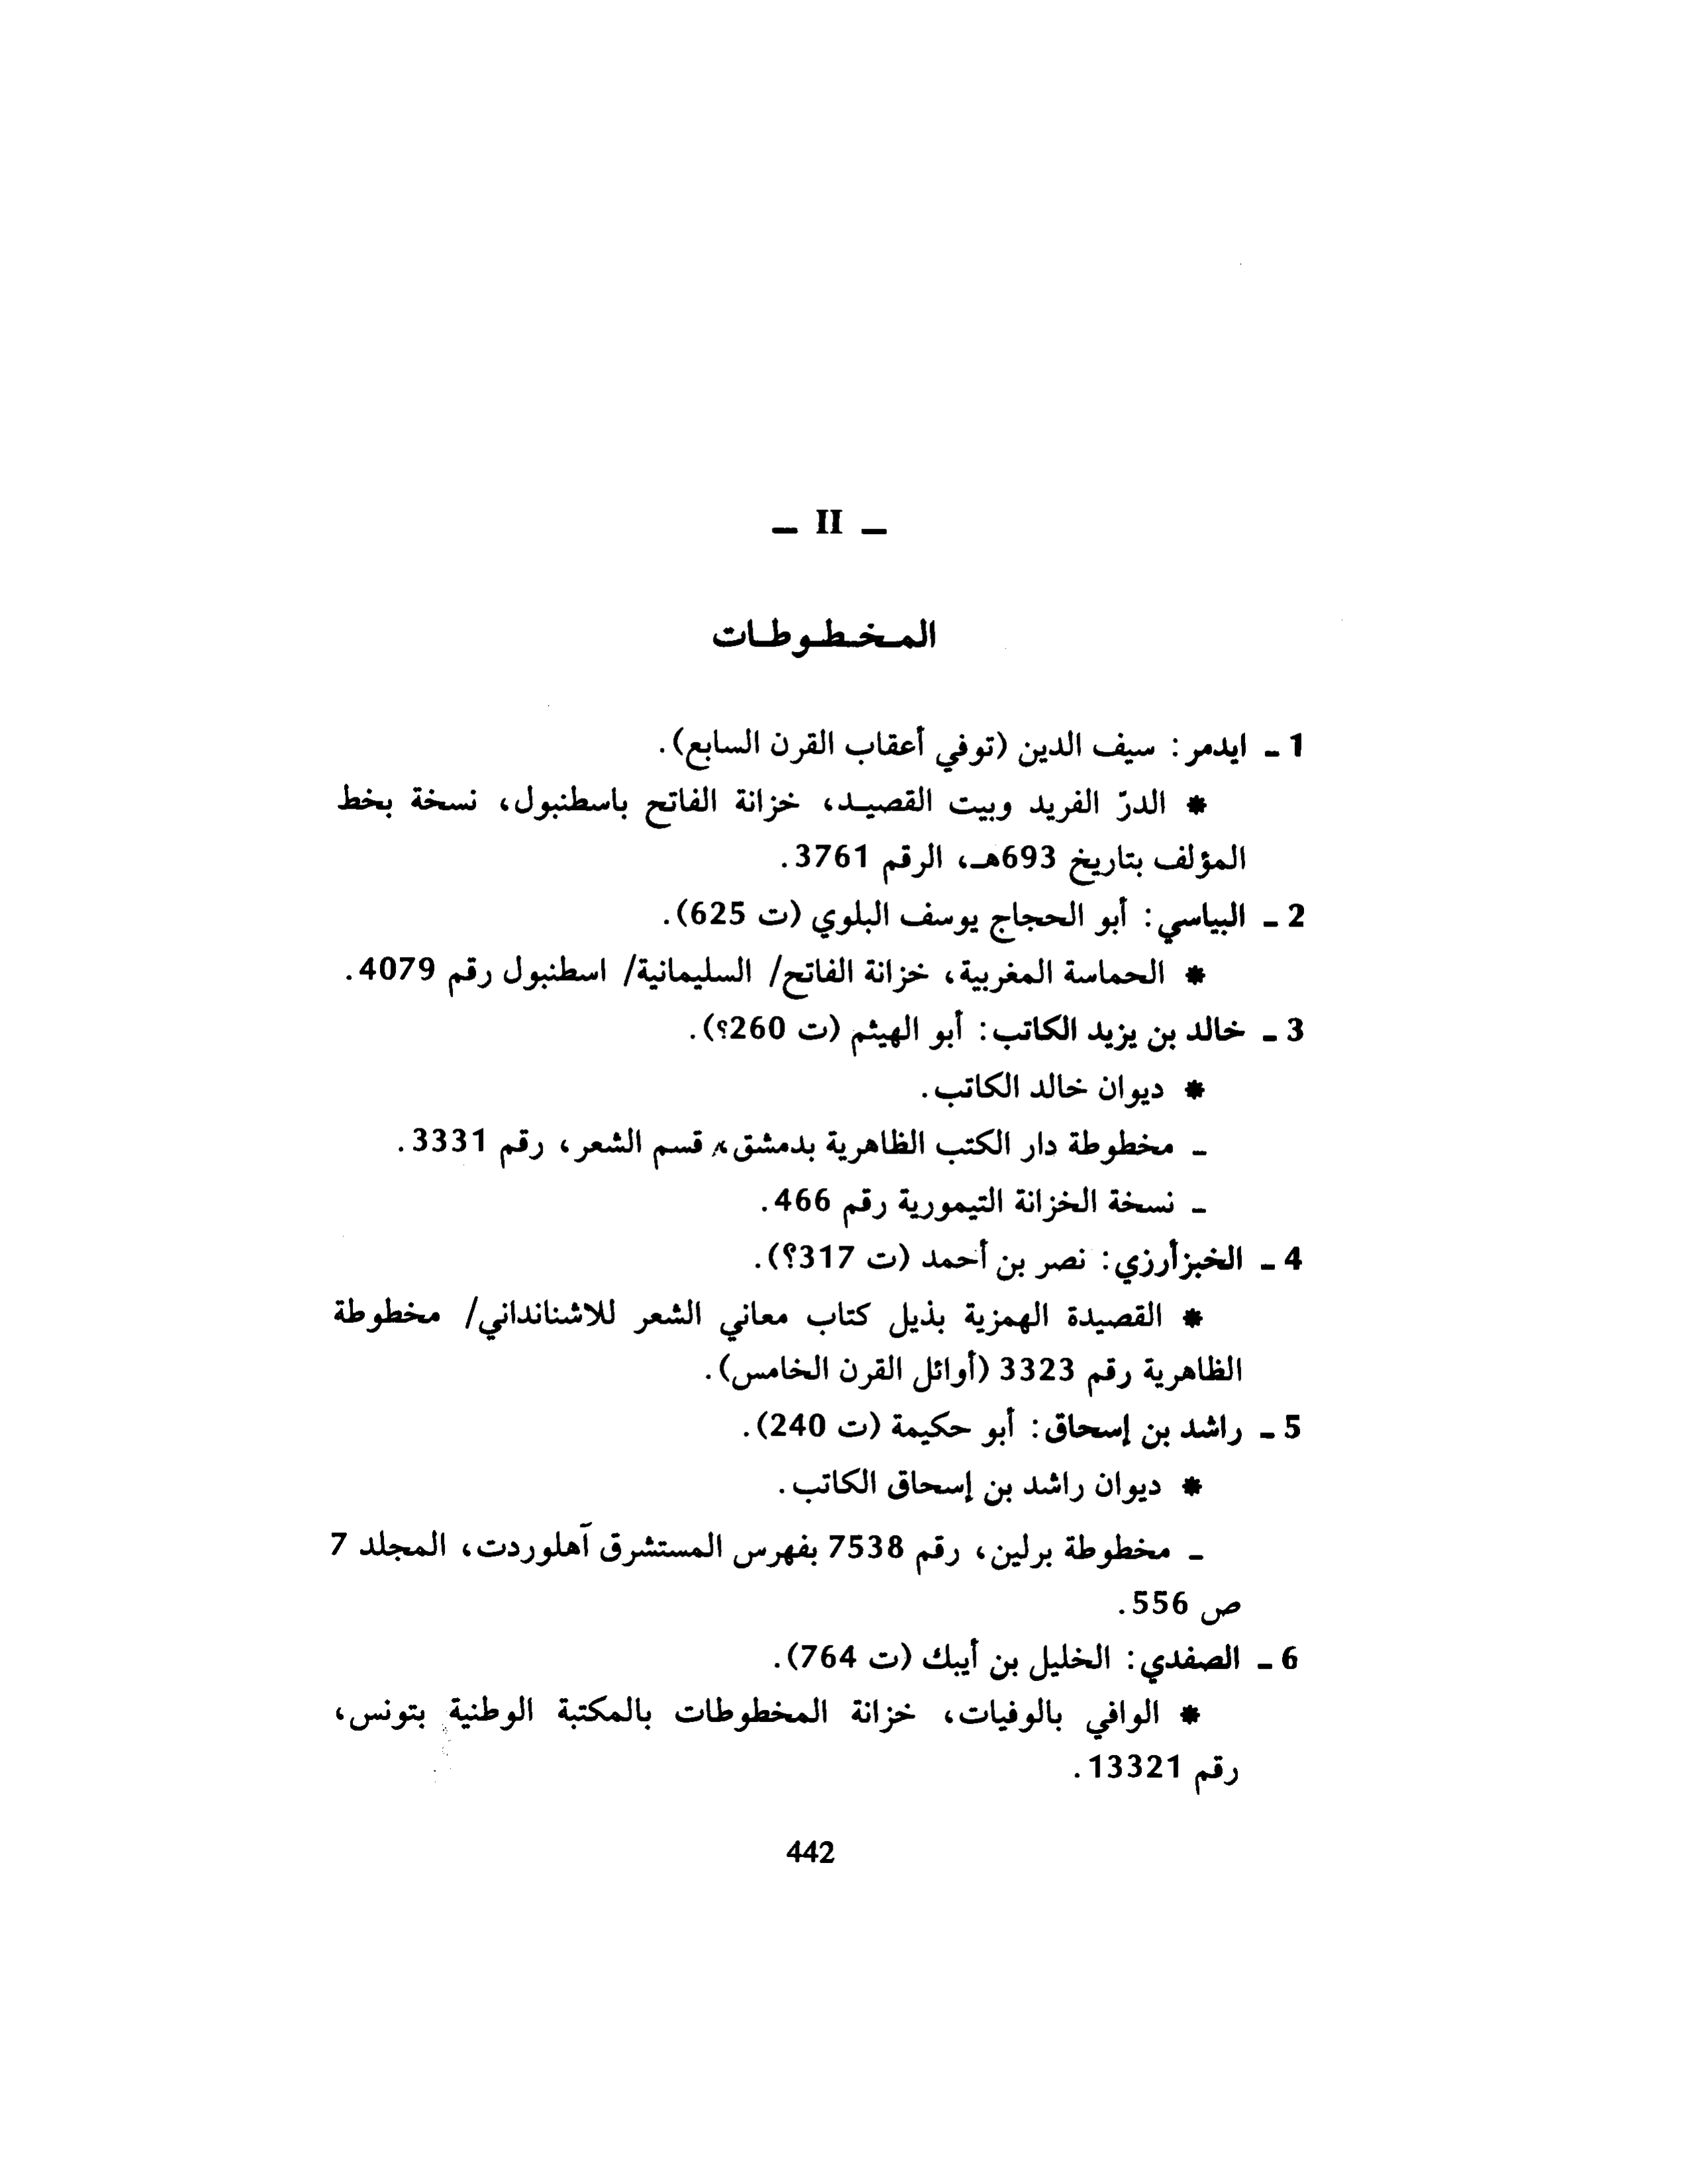 – II –
المخطوطات
1 - ايدمر: سيف الدين (توفي أعقاب القرن السابع).
* الدرّ الفريد وبيت القصيد، خزانة الفاتح باسطنبول، نسخة بخط
المؤلف بتاريخ 693هـ، الرقم 3761.
2 - البياسي: أبو الحجاج يوسف البلوي (ت 625).
* الحماسة المغربية، خزانة الفاتح/ السليمانية/ اسطنبول رقم 4079.
3 - خالد بن يزيد الكاتب: أبو الهيثم (ت 260؟).
* ديوان خالد الكاتب.
- مخطوطة دار الكتب الظاهرية بدمشق، قسم الشعر، رقم 3331.
- نسخة الخزانة التيمورية رقم 466.
4 - الخبزأرزي: نصر بن أحمد (ت 317؟).
* القصيدة الهمزية بذيل كتاب معاني الشعر للاشنانداني/ مخطوطة
الظاهرية رقم 3323 (أوائل القرن الخامس).
5 - راشد بن إسحاق: أبو حكيمة (ت 240).
* ديوان راشد بن إسحاق الكاتب.
- مخطوطة برلين، رقم 7538 بفهرس المستشرق آهلوردت، المجلد 7
ص 556.
6 - الصفدي: الخليل بن أيبك (ت 764).
* الوافي بالوفيات، خزانة المخطوطات بالمكتبة الوطنية بتونس،
رقم 13321.
442